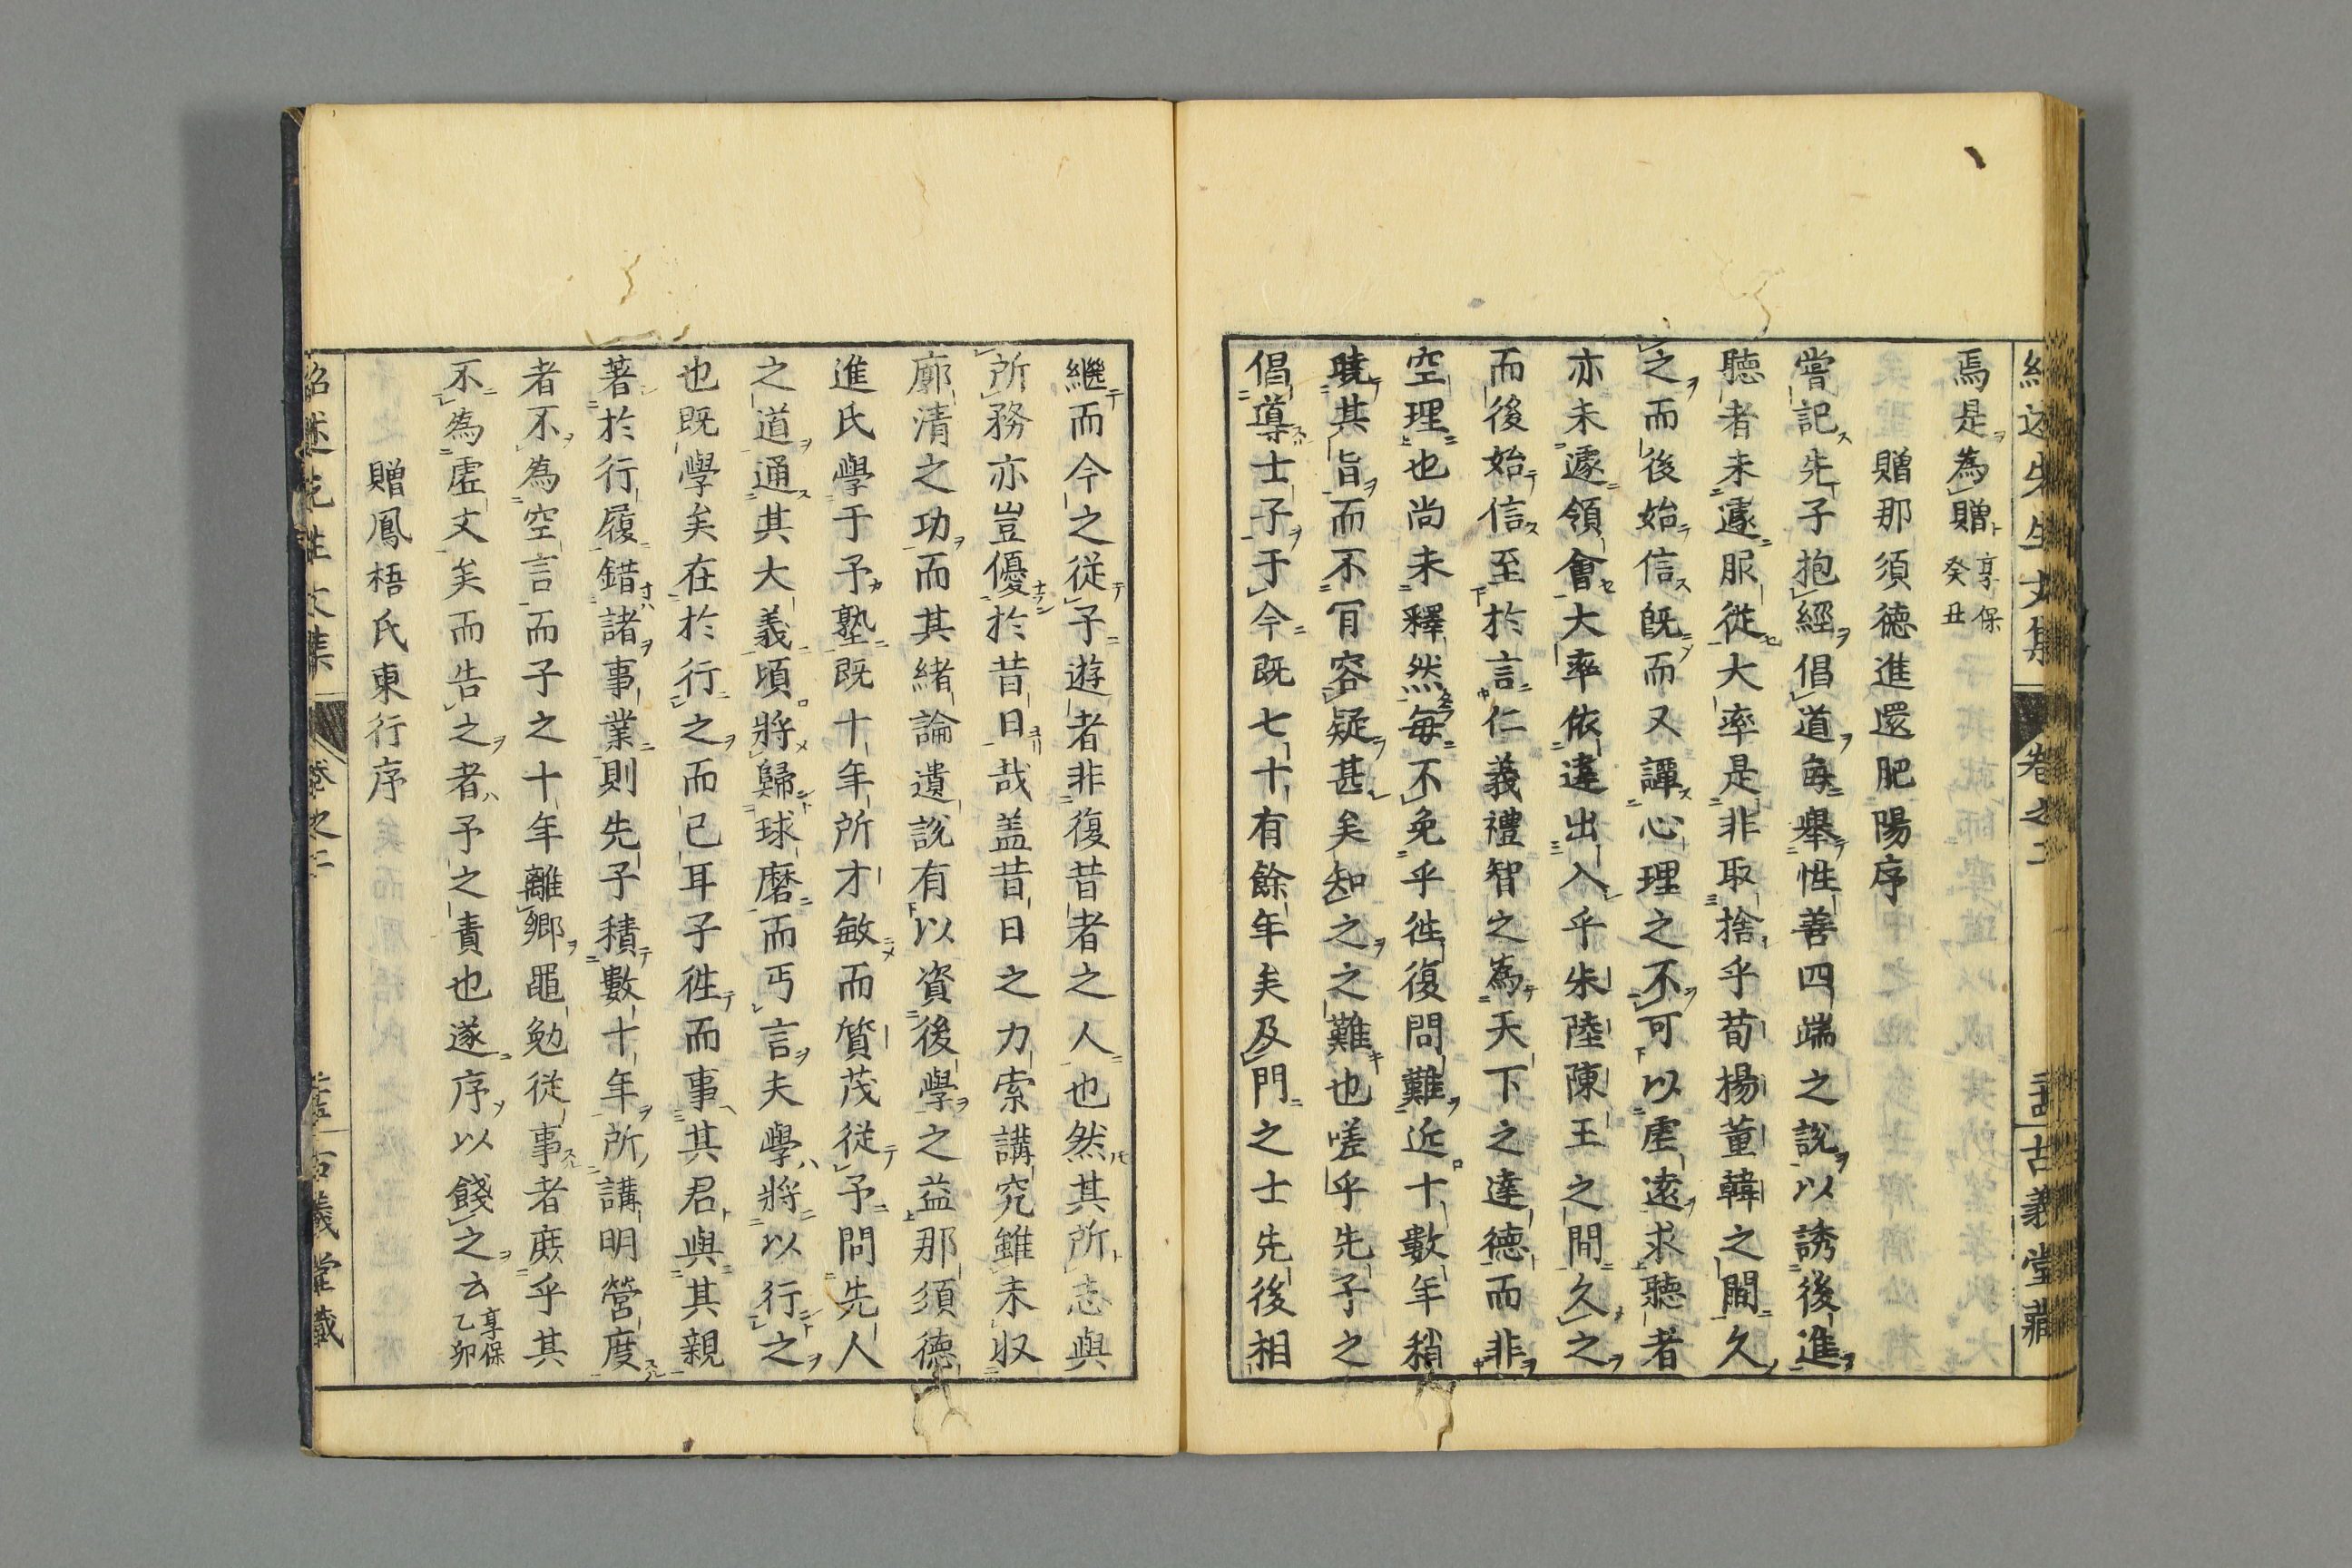 焉是為贈 享保癸丑
贈那須德進還肥陽序
嘗記先子抱經倡道每舉性善四端之說以誘後進
聽者未遽服從大率是非取捨乎荀楊董韓之間久
之而後始信既而又譚心理之不可以虛遠求聽者
亦未遽領會大率依違出入乎朱陸陳王之間久之
而後始信至於言仁義禮智之為天下之達德而非
空理也尚未釋然每不免乎往復問難近十數年稍
曉其旨而不肎容疑甚矣知之之難也嗟乎先子之
倡導士子于今既七十有餘年矣及門之士先後相
卷之二
古義堂藏
繼而今之從子遊者非復昔者之人也然其所志與
所務亦豈優於昔日哉盖昔日之力索講究雖未収
廓清之功而其緒論遺說有以資後學之益那須德
進氏學于予塾既十年所才敏而質茂從予問先人
之道通其大義頃將歸球磨而丐言夫學將以行之
也既學矣在於行之而已耳子徃而事其君與其親
著於行履錯諸事業則先子積數十年所講明營度
者不為空言而子之十年離鄉黽勉從事者庶乎其
不為虛文矣而告之者予之責也遂序以餞之云 享保乙卯
贈鳳梧氏東行序
紹述先生文集
卷之二
古義堂藏